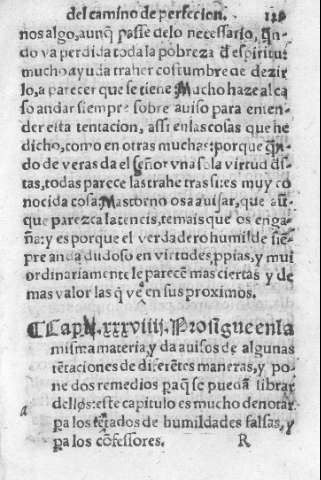 del camino de perfecion. 129
nos algo, aunq̃ passe delo necessario, q̃n-
do va perdida toda la pobreza d̃ espiritu:
mucho ayuda traher costumbre de dezir
lo, a parecer que se tiene. Mucho haze al ca
so andar siempre sobre auiso para enten-
der esta tentacion, assi en las cosas que he
dicho, como en otras muchas: porque q̃n-
do de veras da el señor vna sola virtud d̃s-
tas, todas parece las trahe tras si: es muy co
nocida cosa. Mas torno os a auisar, que aũ-
que parezca la teneis, temais que os enga-
ña: y es porque el verdadero humilde siẽ-
pre anda dudoso en virtudes ppias, y mui
ordinariamente le parecẽ mas ciertas y de
mas valor las q̃ vee en sus proximos.
¶ Cap. xxxviiij. Prosigue en la
misma materia, y da auisos de algunas
tẽtaciones de diferẽtes maneras, y po
ne dos remedios paq̃ se puedã librar
dellos: este capitulo es mucho denotar
pa los tẽtados de humildades falsas, y
a
pa los cõfessores. R